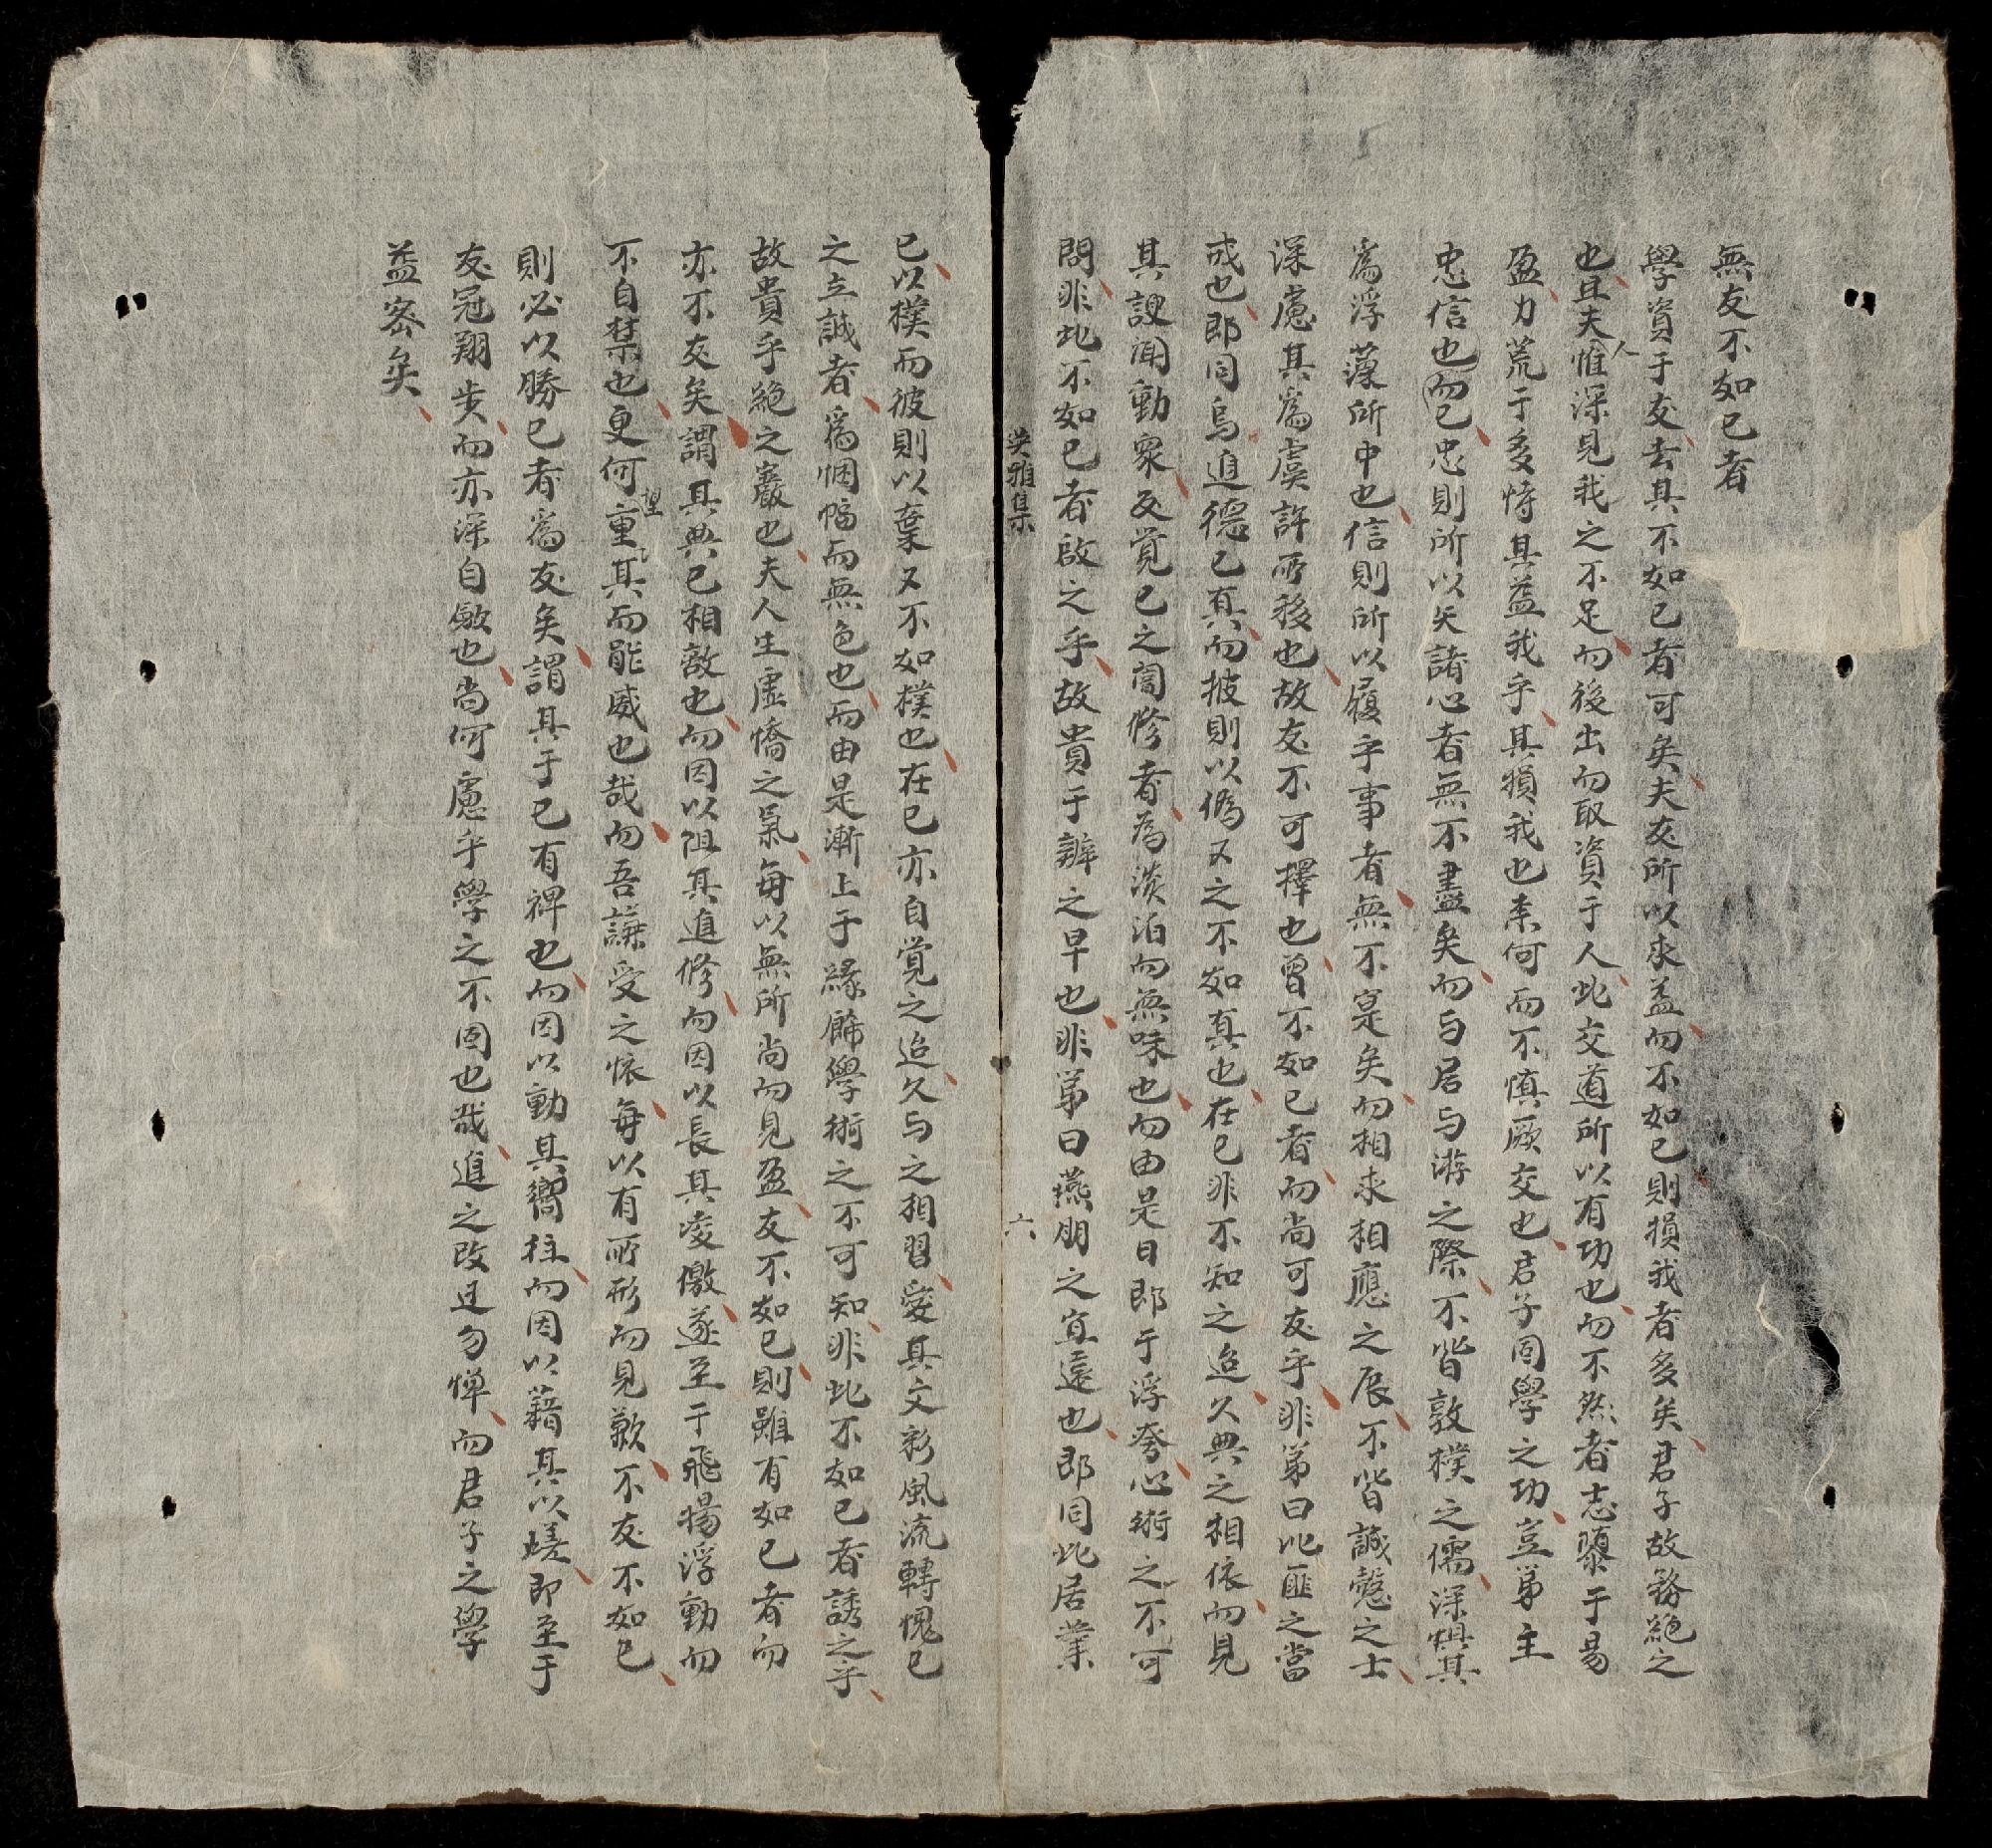 無友不如已者
學資于友去其不如已者可矣夫友所以求益而不如已則損我者多矣君子故務絶之
也且夫人惟深見我之不足而後出而取資于人此交道所以有功也而不然者志隳于易
盈力荒于多恃其益我乎其損我也柰何而不慎厥交也君子固學之功豈第主
忠信也而已忠則所以矢諸心者無不盡矣而与居与游之際不皆敦樸之儒深惧其
為浮薄所中也信則所以履乎事者無不寔矣而相求相應之辰不皆誠慤之士
深慮其為虞詐所移也故友不可擇也曾不如已者而尚可友乎非第曰比匪之當
戒也即同為進德已真而彼則以偽又之不如真也在已非不知之迨久與之相依而見
其謏聞動衆反覚已之闇修者為淡泊而無味也而由是日即于浮夸心術之不可
問非此不如已者啟之乎故貴于辨之早也非第曰燕朋之宜遠也即同此居業
英雅集
六
已以樸而彼則以棄又不如樸也在已亦自覚之迨久与之相習愛其文彩風流轉愧已
之立誠者為悃愊而無色也而由是漸上于緣飾學術之不可知非此不如已者誘之乎
故貴乎絶之嚴也夫人生虛憍之氣每以無所尚而見盈友不如已則雖有如已者而
亦不友矣謂其與已相敵也而因以阻其進修而因以長其凌傲遂至于飛揚浮動而
不自禁也更何望重其而能威也哉而吾謙受之懐每以有所形而見歉不友不如已
則必以勝已者為友矣謂其于已有裨也而因以動其嚮往而因以藉其以嗟即至于
友冠翔步而亦深自斂也尚何慮乎學之不固也哉進之改过勿惮而君子之學
益宻矣